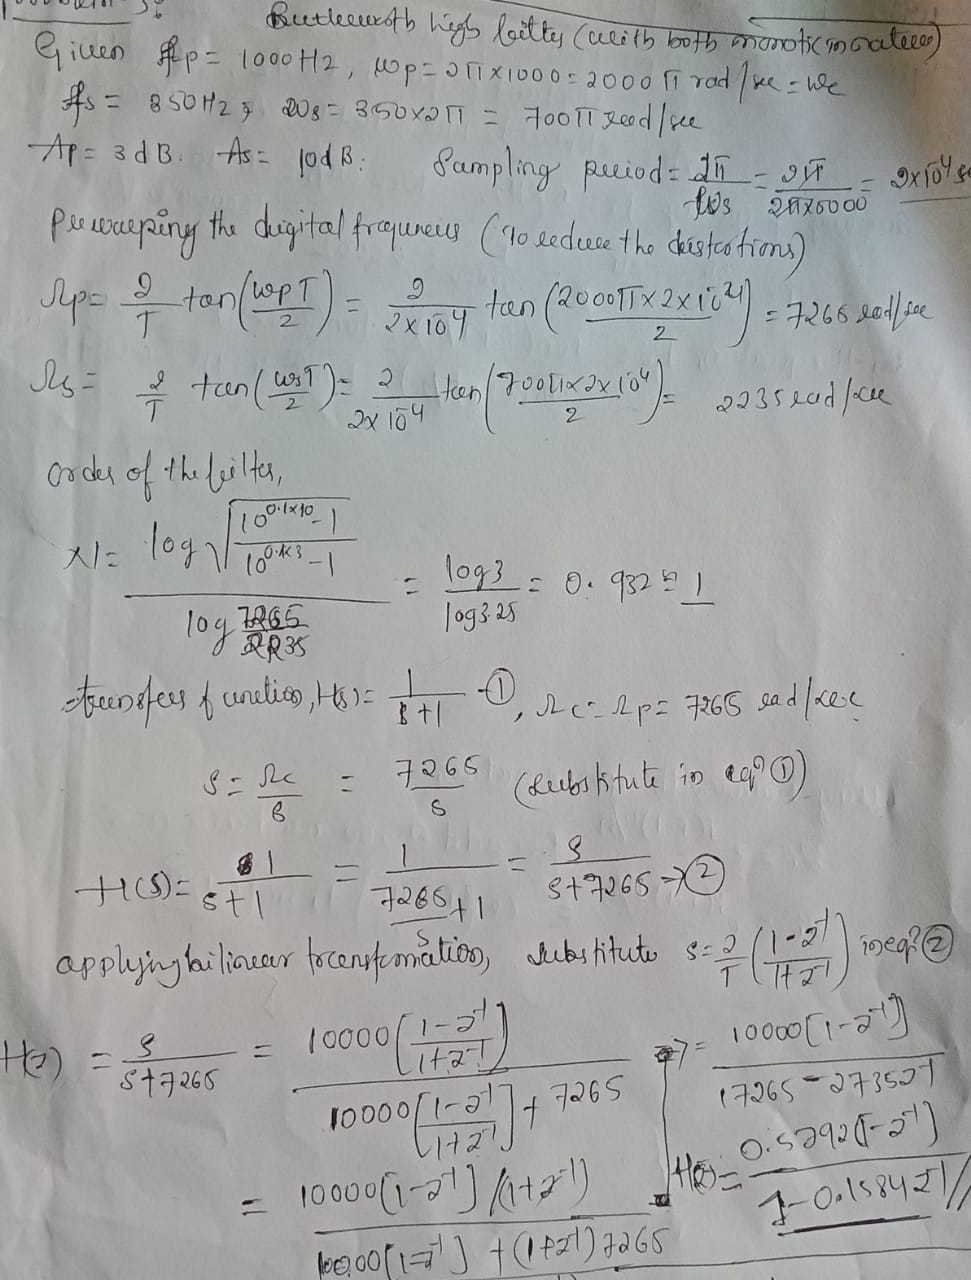 Butterworth high filter (with both monotic
Given fp = 1000 Hz, ωp = 2π×1000 = 2000 π rad/sec = ωc
fs = 350 Hz, ωs = 350×2π = 700π rad/sec
Ap = 3dB. As = 10dB. Sampling period = 2π/ωs = 2π/2π×5000 = 2×10⁻⁴ s
Prewarping the digital frequencies (To reduce the distortions)
Ωp = 2/T tan(ωpT/2) = 2/2×10⁻⁴ tan(2000π×2×10⁻⁴/2) = 7265 rad/sec
Ωs = 2/T tan(ωsT/2) = 2/2×10⁻⁴ tan(700π×2×10⁻⁴/2) = 2235 rad/sec
order of the filter,
N = log √(10^0.1×10 - 1 / 10^0.1×3 - 1) / log 7265/2235 = log 3/log 3.25 = 0.932 ≈ 1
transfer function, H(s) = 1/s+1 -①, Ωc = Ωp = 7265 rad/sec
s = Ωc/s = 7265/s (substitute in eqn ①)
H(s) = 1/s+1 = 1/(7265/s +1) = s/s+7265 →②
applying bilinear transformation, substitute s = 2/T (1-z⁻¹/1+z⁻¹) in eqn ②
H(z) = s/s+7265 = 10000(1-z⁻¹/1+z⁻¹) / 10000[1-z⁻¹/1+z⁻¹] + 7265
= 10000[1-z⁻¹]/(1+z⁻¹) / 10000[1-z⁻¹] + (1+z⁻¹)7265
⇒ = 10000[1-z⁻¹] / 17265 - 2735z⁻¹
H(z) = 0.5792(1-z⁻¹) / 1-0.1584z⁻¹ //